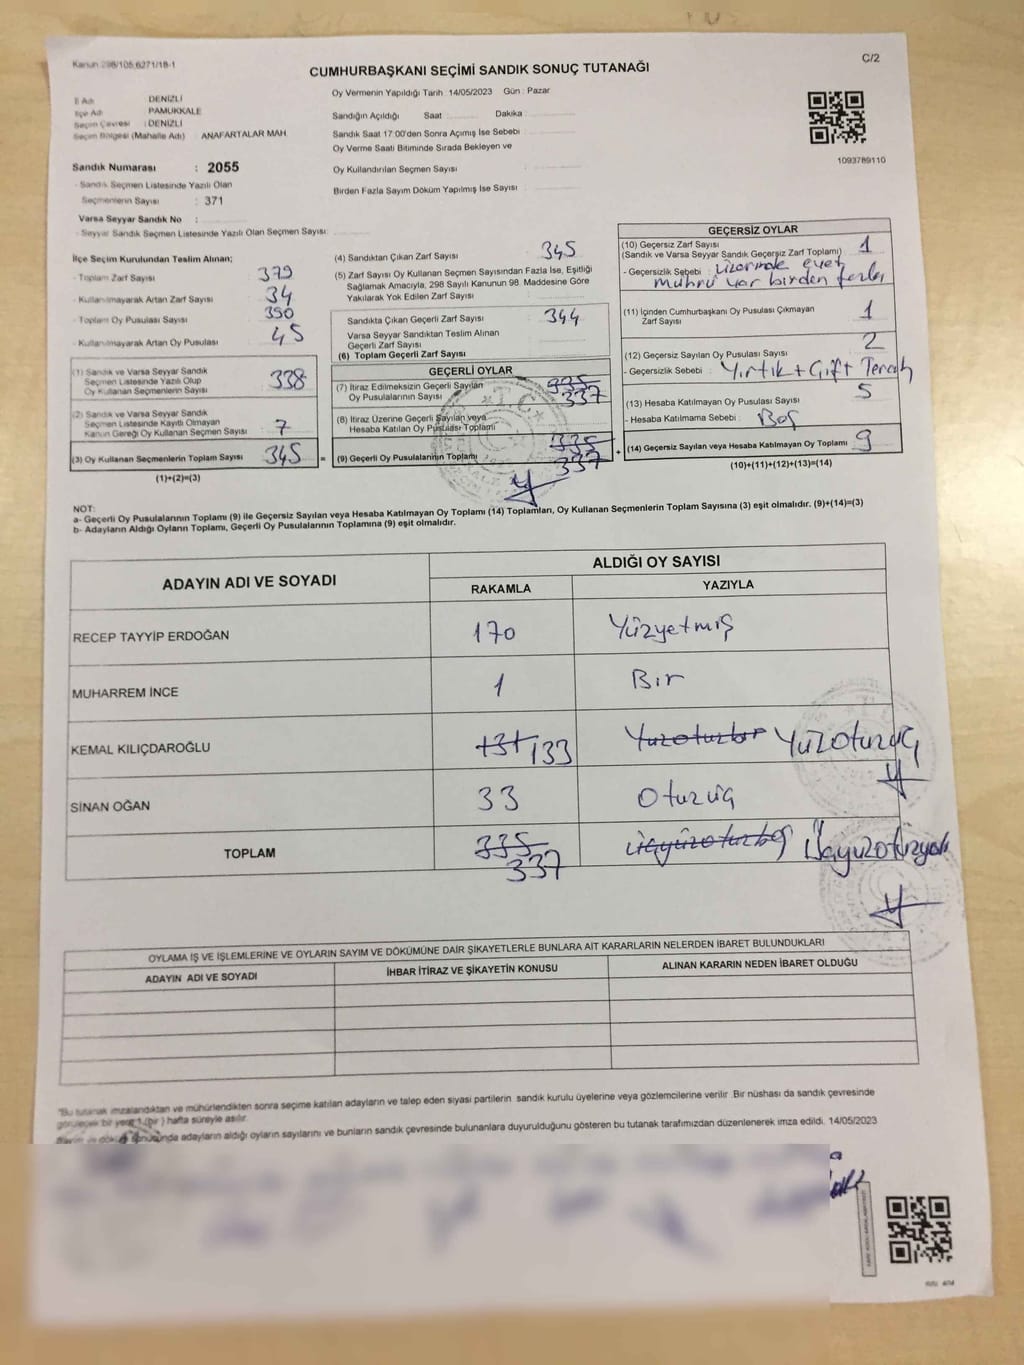 Kanun 298/105,6271/18-1
C/2
CUMHURBAŞKANI SEÇİMİ SANDIK SONUÇ TUTANAĞI
İl Adı : DENİZLİ
İlçe Adı : PAMUKKALE
Seçim Çevresi : DENİZLİ
Seçim Bölgesi (Mahalle Adı) ANAFARTALAR MAH
Sandık Numarası : 2055
- Sandık Seçmen Listesinde Yazılı Olan
Seçmenlerin Sayısı : 371
Varsa Seyyar Sandık No :
- Seyyar Sandık Seçmen Listesinde Yazılı Olan Seçmen Sayısı:
Oy Vermenin Yapıldığı Tarih : 14/05/2023 Gün : Pazar
Sandığın Açıldığı Saat Dakika
Sandık Saat 17:00'den Sonra Açımış İse Sebebi :
Oy Verme Saati Bitiminde Sırada Bekleyen ve
Oy Kullandırılan Seçmen Sayısı :
Birden Fazla Sayım Döküm Yapılmış İse Sayısı :
1093789110
İlçe Seçim Kurulundan Teslim Alınan;
- Toplam Zarf Sayısı 379
- Kullanılmayarak Artan Zarf Sayısı 34
- Toplam Oy Pusulası Sayısı 390
- Kullanılmayarak Artan Oy Pusulası 45
(1) Sandık ve Varsa Seyyar Sandık
Seçmen Listesinde Yazılı Olup
Oy Kullanan Seçmenlerin Sayısı 338
(2) Sandık ve Varsa Seyyar Sandık
Seçmen Listesinde Kayıtlı Olmayan
Kanun Gereği Oy Kullanan Seçmen Sayısı 7
(3) Oy Kullanan Seçmenlerin Toplam Sayısı 345 =
(1)+(2)=(3)
(4) Sandıktan Çıkan Zarf Sayısı 345
(5) Zarf Sayısı Oy Kullanan Seçmen Sayısından Fazla İse, Eşitliği
Sağlamak Amacıyla, 298 Sayılı Kanunun 98. Maddesine Göre
Yakılarak Yok Edilen Zarf Sayısı :
Sandıkta Çıkan Geçerli Zarf Sayısı 344
Varsa Seyyar Sandıktan Teslim Alınan
Geçerli Zarf Sayısı
(6) Toplam Geçerli Zarf Sayısı
GEÇERLİ OYLAR
(7) İtiraz Edilmeksizin Geçerli Sayılan 335
Oy Pusulalarının Sayısı 337
(8) İtiraz Üzerine Geçerli Sayılan veya
Hesaba Katılan Oy Pusulası Toplamı
T.C.
(9) Geçerli Oy Pusulalarının Toplamı 335 +
337
GEÇERSİZ OYLAR
(10) Geçersiz Zarf Sayısı
(Sandık ve Varsa Seyyar Sandık Geçersiz Zarf Toplamı) 1
- Geçersizlik Sebebi : Üzerinde evet
mührü var birden fazla
(11) İçinden Cumhurbaşkanı Oy Pusulası Çıkmayan
Zarf Sayısı 1
(12) Geçersiz Sayılan Oy Pusulası Sayısı 2
- Geçersizlik Sebebi : Yırtık + Çift Tercih
(13) Hesaba Katılmayan Oy Pusulası Sayısı 5
- Hesaba Katılmama Sebebi : Boş
(14) Geçersiz Sayılan veya Hesaba Katılmayan Oy Toplamı 9
(10)+(11)+(12)+(13)=(14)
NOT:
a- Geçerli Oy Pusulalarının Toplamı (9) ile Geçersiz Sayılan veya Hesaba Katılmayan Oy Toplamı (14) Toplamları, Oy Kullanan Seçmenlerin Toplam Sayısına (3) eşit olmalıdır. (9)+(14)=(3)
b- Adayların Aldığı Oyların Toplamı, Geçerli Oy Pusulalarının Toplamına (9) eşit olmalıdır.
ADAYIN ADI VE SOYADI
ALDIĞI OY SAYISI
RAKAMLA YAZIYLA
RECEP TAYYİP ERDOĞAN 170 Yüzyetmiş
MUHARREM İNCE 1 Bir
KEMAL KILIÇDAROĞLU 131 133 Yüzotuzbir Yüzotuzüç
SİNAN OĞAN 33 Otuzüç
TOPLAM 335 337 Üçyüzotuzbeş Üçyüzotuzyedi
OYLAMA İŞ VE İŞLEMLERİNE VE OYLARIN SAYIM VE DÖKÜMÜNE DAİR ŞİKAYETLERLE BUNLARA AİT KARARLARIN NELERDEN İBARET BULUNDUKLARI
ADAYIN ADI VE SOYADI İHBAR İTİRAZ VE ŞİKAYETİN KONUSU ALINAN KARARIN NEDEN İBARET OLDUĞU
"Bu tutanak imzalandıktan ve mühürlendikten sonra seçime katılan adayların ve talep eden siyasi partilerin sandık kurulu üyelerine veya gözlemcilerine verilir. Bir nüshası da sandık çevresinde
görülecek bir yere 1 (bir) hafta süreyle asılır.
Sayım ve döküm sonucunda adayların aldığı oyların sayılarını ve bunların sandık çevresinde bulunanlara duyurulduğunu gösteren bu tutanak tarafımızdan düzenlenerek imza edildi. 14/05/2023